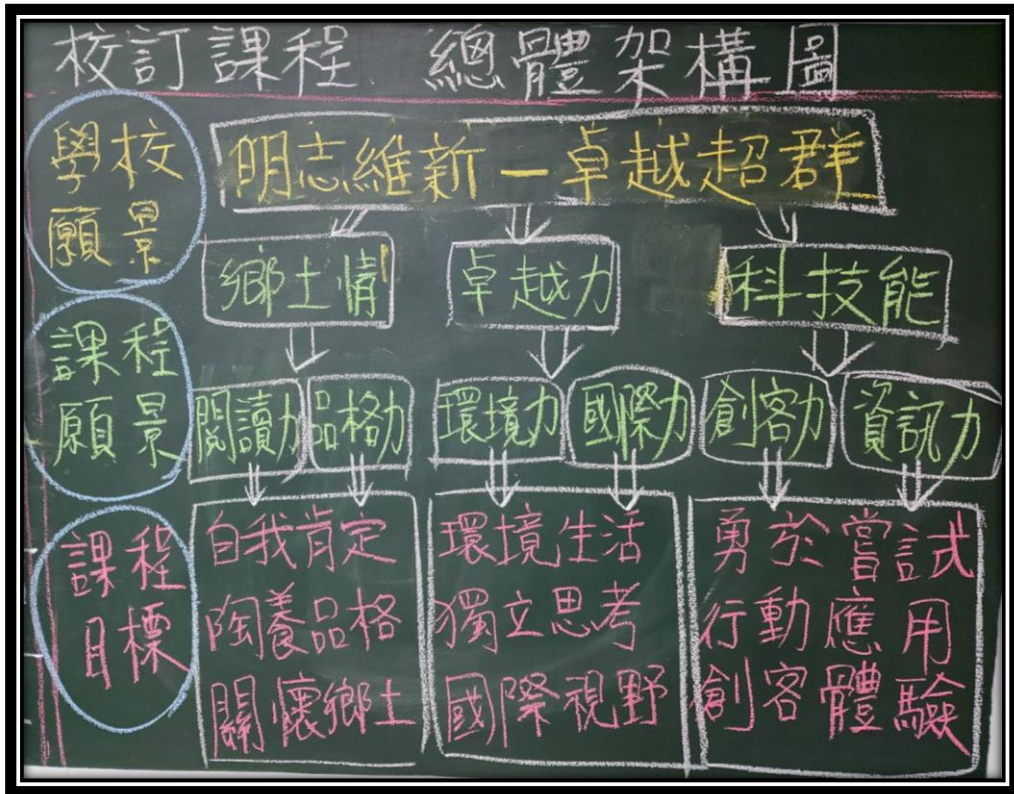 校訂課程 總體架構圖
學校
願景
明志維新－卓越超群
課程
願景
鄉土情
卓越力
科技能
閱讀力
品格力
環境力
國際力
創客力
資訊力
課程
目標
自我肯定
陶養品格
關懷鄉土
環境生活
獨立思考
國際視野
勇於嘗試
行動應用
創客體驗